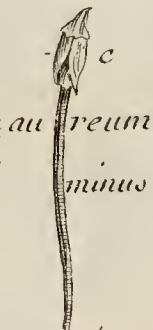 c
au reum
minus